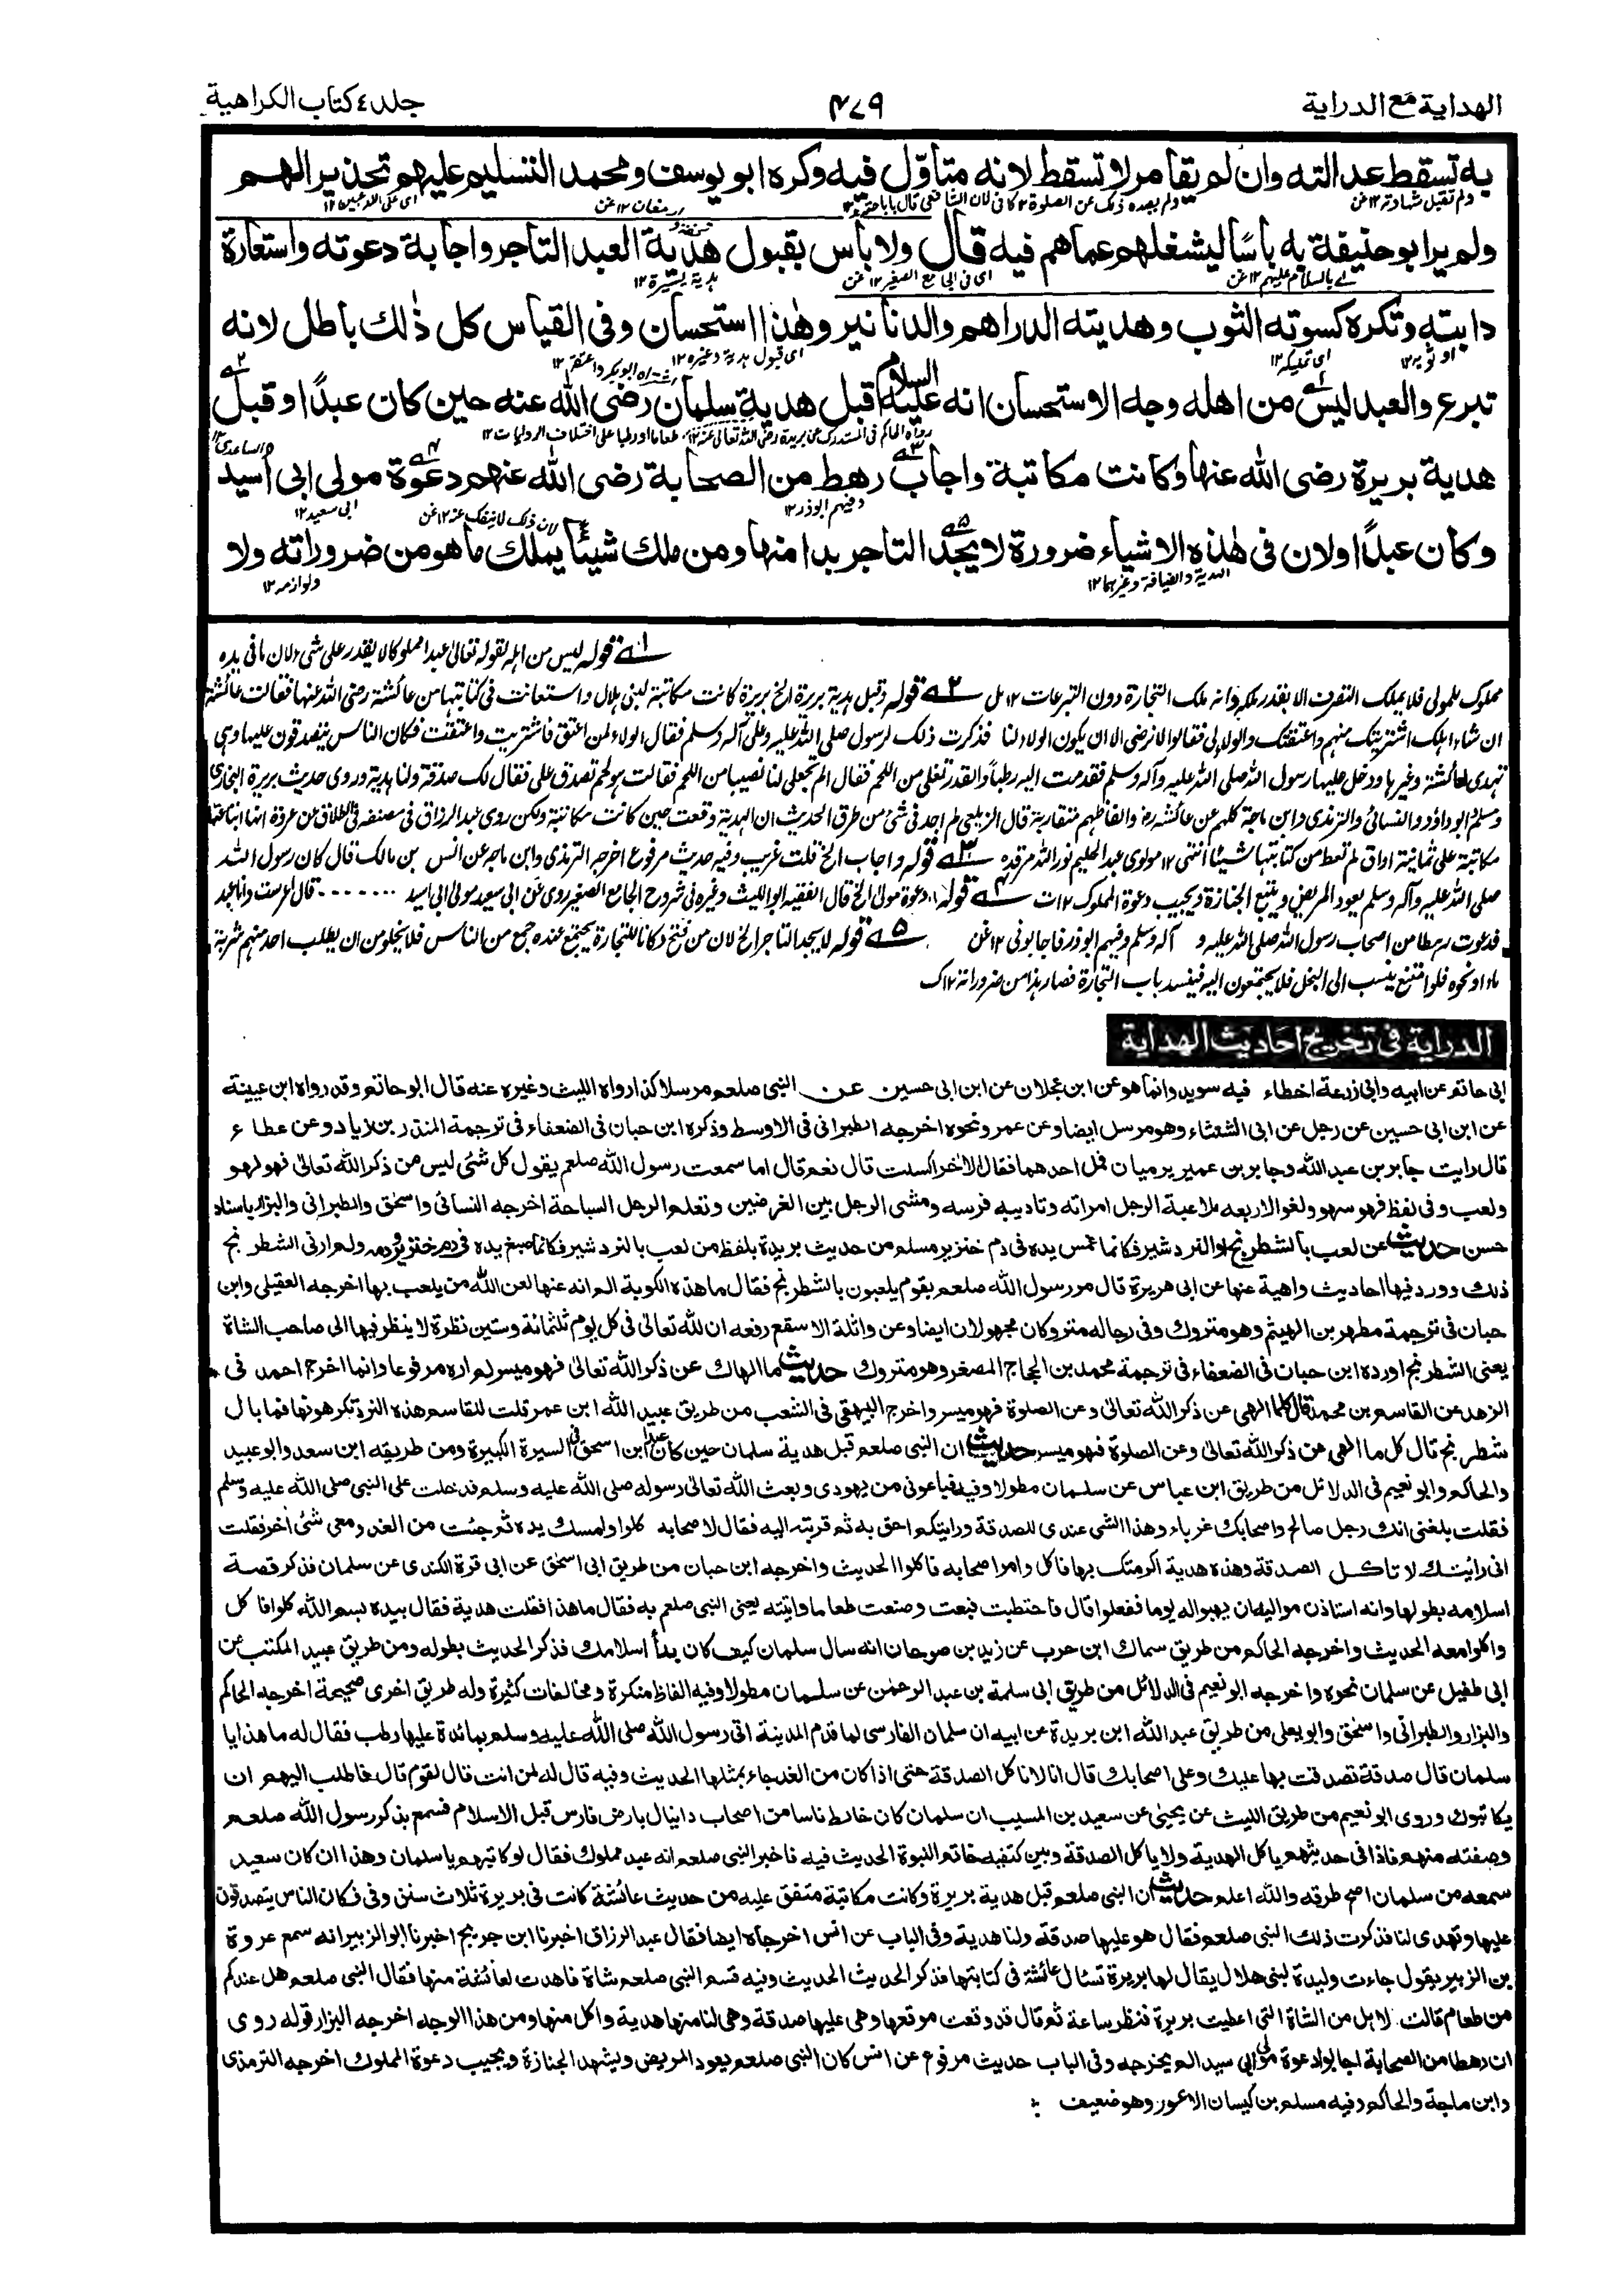 الهداية مع الدراية
٤٧٩
جلد٤ كتاب الكراهية
به تسقط عدالته وان لم يقامر لا تسقط لانه متأوّل فيه وكره ابو يوسف ومحمد التسليم عليهم تحذيرا لهم
ولم تقبل شهادته ١٢ عن
ولم ير ابو حنيفة به بأسًا ليشغلهم عما هم فيه قال ولا بأس بقبول هدية العبد التاجر واجابة دعوته واستعارة
اى بالسلام عليهم ١٢ عن اى فى الجامع الصغير ١٢ عن هدية يسيرة ١٢
دابته وتكره كسوته الثوب وهديته الدراهم والدنانير وهذا استحسان وفى القياس كل ذلك باطل لانه
او ثوبه ١٢ اى تمليكه ١٢ اى قبول هدية وغيره ١٢
تبرع والعبد ليس من اهله وجه الاستحسان انه عليه السلام قبل هدية سلمان رضى الله عنه حين كان عبدًا وقبل
رواه الحاكم فى المستدرك عن بريدة رضى الله تعالى عنه ١٢ طعاما او رطبا على اختلاف الروايات ١٢
هدية بريرة رضى الله عنها وكانت مكاتبة واجاب رهط من الصحابة رضى الله عنهم دعوة مولى ابى اسيد
وفيهم ابوذر ١٢ ابى سعيد ١٢
وكان عبدًا ولان فى هذه الاشياء ضرورة لا يجد التاجر بدا منها ومن ملك شيئًا يملك ما هو من ضروراته ولا
الهدية والضيافة وغيرهما ١٢ ولوازمه ١٢
١ قوله ليس من اهله لقوله تعالى عبدا مملوكا لا يقدر على شئ ولان ما فى يده
مملوك للمولى فلا يملك التصرف الا بقدر ملكه وانه ملك التجارة دون التبرعات ١٢ مل ٢ قوله وقبل هدية بريرة الخ بريرة كانت مكاتبة لبنى هلال واستعانت فى كتابتها من عائشة رضى الله عنها فقالت عائشة
ان شاء اهلك اشتريتك منهم واعتقتك والولاء لى فقالوا لا نرضى الا ان يكون الولاء لنا فذكرت ذلك لرسول صلى الله عليه وعلى آله وسلم فقال الولاء لمن اعتق فاشتريت واعتقت فكان الناس يتصدقون عليها وهى
تهدى لعائشة وغيرها ودخل عليها رسول الله صلى الله عليه وآله وسلم فقدمت اليه رطبا والقدر تغلى من اللحم فقال الم تجعلى لنا نصيبا من اللحم فقالت هو لحم تصدق على فقال لك صدقة ولنا هدية وروى حديث بريرة البخارى
ومسلم وابو داؤد والنسائى والترمذى وابن ماجة كلهم عن عائشة رض والفاظهم متقاربة قال الزيلعى لم اجد فى شئ من طرق الحديث ان الهدية وقعت حين كانت مكاتبة ولكن روى عبد الرزاق فى مصنفه فى الطلاق عن عروة انها ابتاعتها
مكاتبة على ثمانية اواق لم تعط من كتابتها شيئا انتهى ١٢ مولوى عبد الحليم نور الله مرقده ٣ قوله واجاب الخ قلت غريب وفيه حديث مرفوع اخرجه الترمذى وابن ماجه عن انس بن مالك قال كان رسول الله
صلى الله عليه وآله وسلم يعود المريض ويتبع الجنازة ويجيب دعوة المملوك ١٢ ت ٤ قوله دعوة مولى الخ قال الفقيه ابو الليث وغيره فى شروح الجامع الصغير روى عن ابى سعيد مولى ابى اسيد ....... قال عرست وانا عبد
فدعوت رهطا من اصحاب رسول الله صلى الله عليه و آله وسلم وفيهم ابوذر فاجابونى ١٢ عن ٥ قوله لا يجد التاجر الخ لان من فتح دكانا للتجارة يجتمع عنده جمع من الناس فلا يخلو من ان يطلب احد منهم شربة
ماء او نحوه فلو امتنع ينسب الى البخل فلا يجتمعون اليه فيفسد باب التجارة فصار هذا من ضروراته ١٢ ك
الدراية فى تخريج احاديث الهداية
ابى حاتم عن ابيه وابى زرعة اخطاء فيه سويد وانما هو عن ابن عجلان عن ابن ابى حسين عن النبى صلعم مرسلا كذا رواه الليث وغيره عنه قال ابو حاتم وقد رواه ابن عيينة
عن ابن ابى حسين عن رجل عن ابى الشعثاء وهو مرسل ايضا وعن عمر ونحوه اخرجه الطبرانى فى الاوسط وذكره ابن حبان فى الضعفاء فى ترجمة المنذر بن زياد وعن عطاء
قال رايت جابر بن عبد الله وجابر بن عمير يرميان فمل احدهما فقال الاخر اكسلت قال نعم قال اما سمعت رسول الله صلعم يقول كل شئ ليس من ذكر الله تعالى فهو لهو
ولعب وفى لفظ فهو سهو ولغو الا اربعه ملاعبة الرجل امراته وتاديبه فرسه ومشى الرجل بين الغرضين وتعلم الرجل السباحة اخرجه النسائى واسحٰق والطبرانى والبزار باسناد
حسن حديث من لعب بالشطرنج او النرد شير فكانما غمس يده فى دم خنزير مسلم من حديث بريدة بلفظ من لعب بالنرد شير فكانما صبغ يده فى دم خنزير ودمه ولم ار فى الشطرنج
ذلك وورد فيها احاديث واهية عنها عن ابى هريرة قال مر رسول الله صلعم بقوم يلعبون بالشطرنج فقال ما هذه الكوبة الم انه عنها لعن الله من يلعب بها اخرجه العقيلى وابن
حبان فى ترجمة مطهر بن الهيثم وهو متروك وفى رجاله متروكان مجهولان ايضا وعن واثلة الاسقع رفعه ان لله تعالى فى كل يوم ثلثمائة وستين نظرة لا ينظر فيها الى صاحب الشاة
يعنى الشطرنج اورده ابن حبان فى الضعفاء فى ترجمة محمد بن الحجاج المصغر وهو متروك حديث ما الهاك عن ذكر الله تعالى فهو ميسر لم اره مرفوعا وانما اخرج احمد فى
الزهد عن القاسم بن محمد قال كلما الهى عن ذكر الله تعالى وعن الصلوة فهو ميسر واخرج البيهقى فى الشعب من طريق عبيد الله ابن عمر قلت للقاسم هذه النرد تكرهونها فما بال
شطرنج قال كل ما الهى عن ذكر الله تعالى وعن الصلوة فهو ميسر حديث ان النبى صلعم قبل هدية سلمان حين كان عبدا ابن اسحق فى السيرة الكبيرة ومن طريقه ابن سعد وابو عبيد
والحاكم وابو نعيم فى الدلائل من طريق ابن عباس عن سلمان مطولا وفيه فباعونى من يهودى وبعث الله تعالى رسوله صلى الله عليه وسلم فدخلت على النبى صلى الله عليه وسلم
فقلت بلغنى انك رجل صالح واصحابك غرباء وهذا الشى عندى للصدقة ورايتكم احق به ثم قربته اليه فقال لاصحابه كلوا ولمسك يده ثم جئت من الغد ومعى شئ اخر فقلت
انى رايتك لا تاكل الصدقة وهذه هدية اكرمتك بها فاكل وامر اصحابه فاكلوا الحديث واخرجه ابن حبان من طريق ابى اسحق عن ابى قرة الكندى عن سلمان فذكر قصة
اسلامه بطولها وانه استاذن مواليه ان يهبوا له يوما ففعلوا قال فاحتطبت فبعت وصنعت طعاما واتيته يعنى النبى صلعم به فقال ما هذا فقلت هدية فقال بيده بسم الله كلوا فاكل
واكلوا معه الحديث واخرجه الحاكم من طريق سماك ابن حرب عن زيد بن صوحان انه سال سلمان كيف كان بدأ اسلامك فذكر الحديث بطوله ومن طريق عبيد المكتب عن
ابى طفيل عن سلمان نحوه واخرجه ابو نعيم فى الدلائل من طريق ابى سلمة بن عبد الرحمٰن عن سلمان مطولا وفيه الفاظ منكرة ومخالفات كثيرة وله طريق اخرى صحيحة اخرجه الحاكم
والبزار والطبرانى واسحٰق وابو يعلى من طريق عبد الله ابن بريدة عن ابيه ان سلمان الفارسى لما قدم المدينة اتى رسول الله صلى الله عليه وسلم بمائدة عليها رطب فقال له ما هذا يا
سلمان قال صدقة تصدقت بها عليك وعلى اصحابك قال انا لا ناكل الصدقة حتى اذا كان من الغد جاء بمثلها الحديث وفيه قال له لمن انت قال لقوم قال فاطلب اليهم ان
يكاتبوك وروى ابو نعيم من طريق الليث عن يحيىٰ عن سعيد بن المسيب ان سلمان كان خالط ناسا من اصحاب دانيال بارض فارس قبل الاسلام فسمع بذكر رسول الله صلعم
وصفته منهم فاذا فى حديثهم ياكل الهدية ولا ياكل الصدقة وبين كتفيه خاتم النبوة الحديث فيه فاخبر النبى صلعم انه عبد مملوك فقال لو كاتبهم يا سلمان وهذا ان كان سعيد
سمعه من سلمان اصح طرقه والله اعلم حديث ان النبى صلعم قبل هدية بريرة وكانت مكاتبة متفق عليه من حديث عائشة كانت فى بريرة ثلاث سنن وفى فكان الناس يتصدقون
عليها وتهدى لنا فذكرت ذلك النبى صلعم فقال هو عليها صدقة ولنا هدية وفى الباب عن انس اخرجاه ايضا فقال عبد الرزاق اخبرنا ابن جريج اخبرنا ابو الزبير انه سمع عروة
بن الزبير يقول جاءت وليدة لبنى هلال يقال لها بريرة تسئال عائشة فى كتابتها فذكر الحديث الحديث وفيه قسم النبى صلعم شاة فاهدت لعائشة منها فقال النبى صلعم هل عندكم
من طعام قالت لا بل من الشاة التى اعطيت بريرة فنظر ساعة ثم قال قد وقعت موقعها وهى عليها صدقة وهى لنا منها هدية واكل منها ومن هذا الوجه اخرجه البزار قوله روى
ان رهطا من الصحابة اجابوا دعوة مولى ابى سيد لم يخرجه وفى الباب حديث مرفوع عن انس كان النبى صلعم يعود المريض ويشهد الجنازة ويجيب دعوة المملوك اخرجه الترمذى
وابن ماجة والحاكم وفيه مسلم بن كيسان الاعور وهو ضعيف